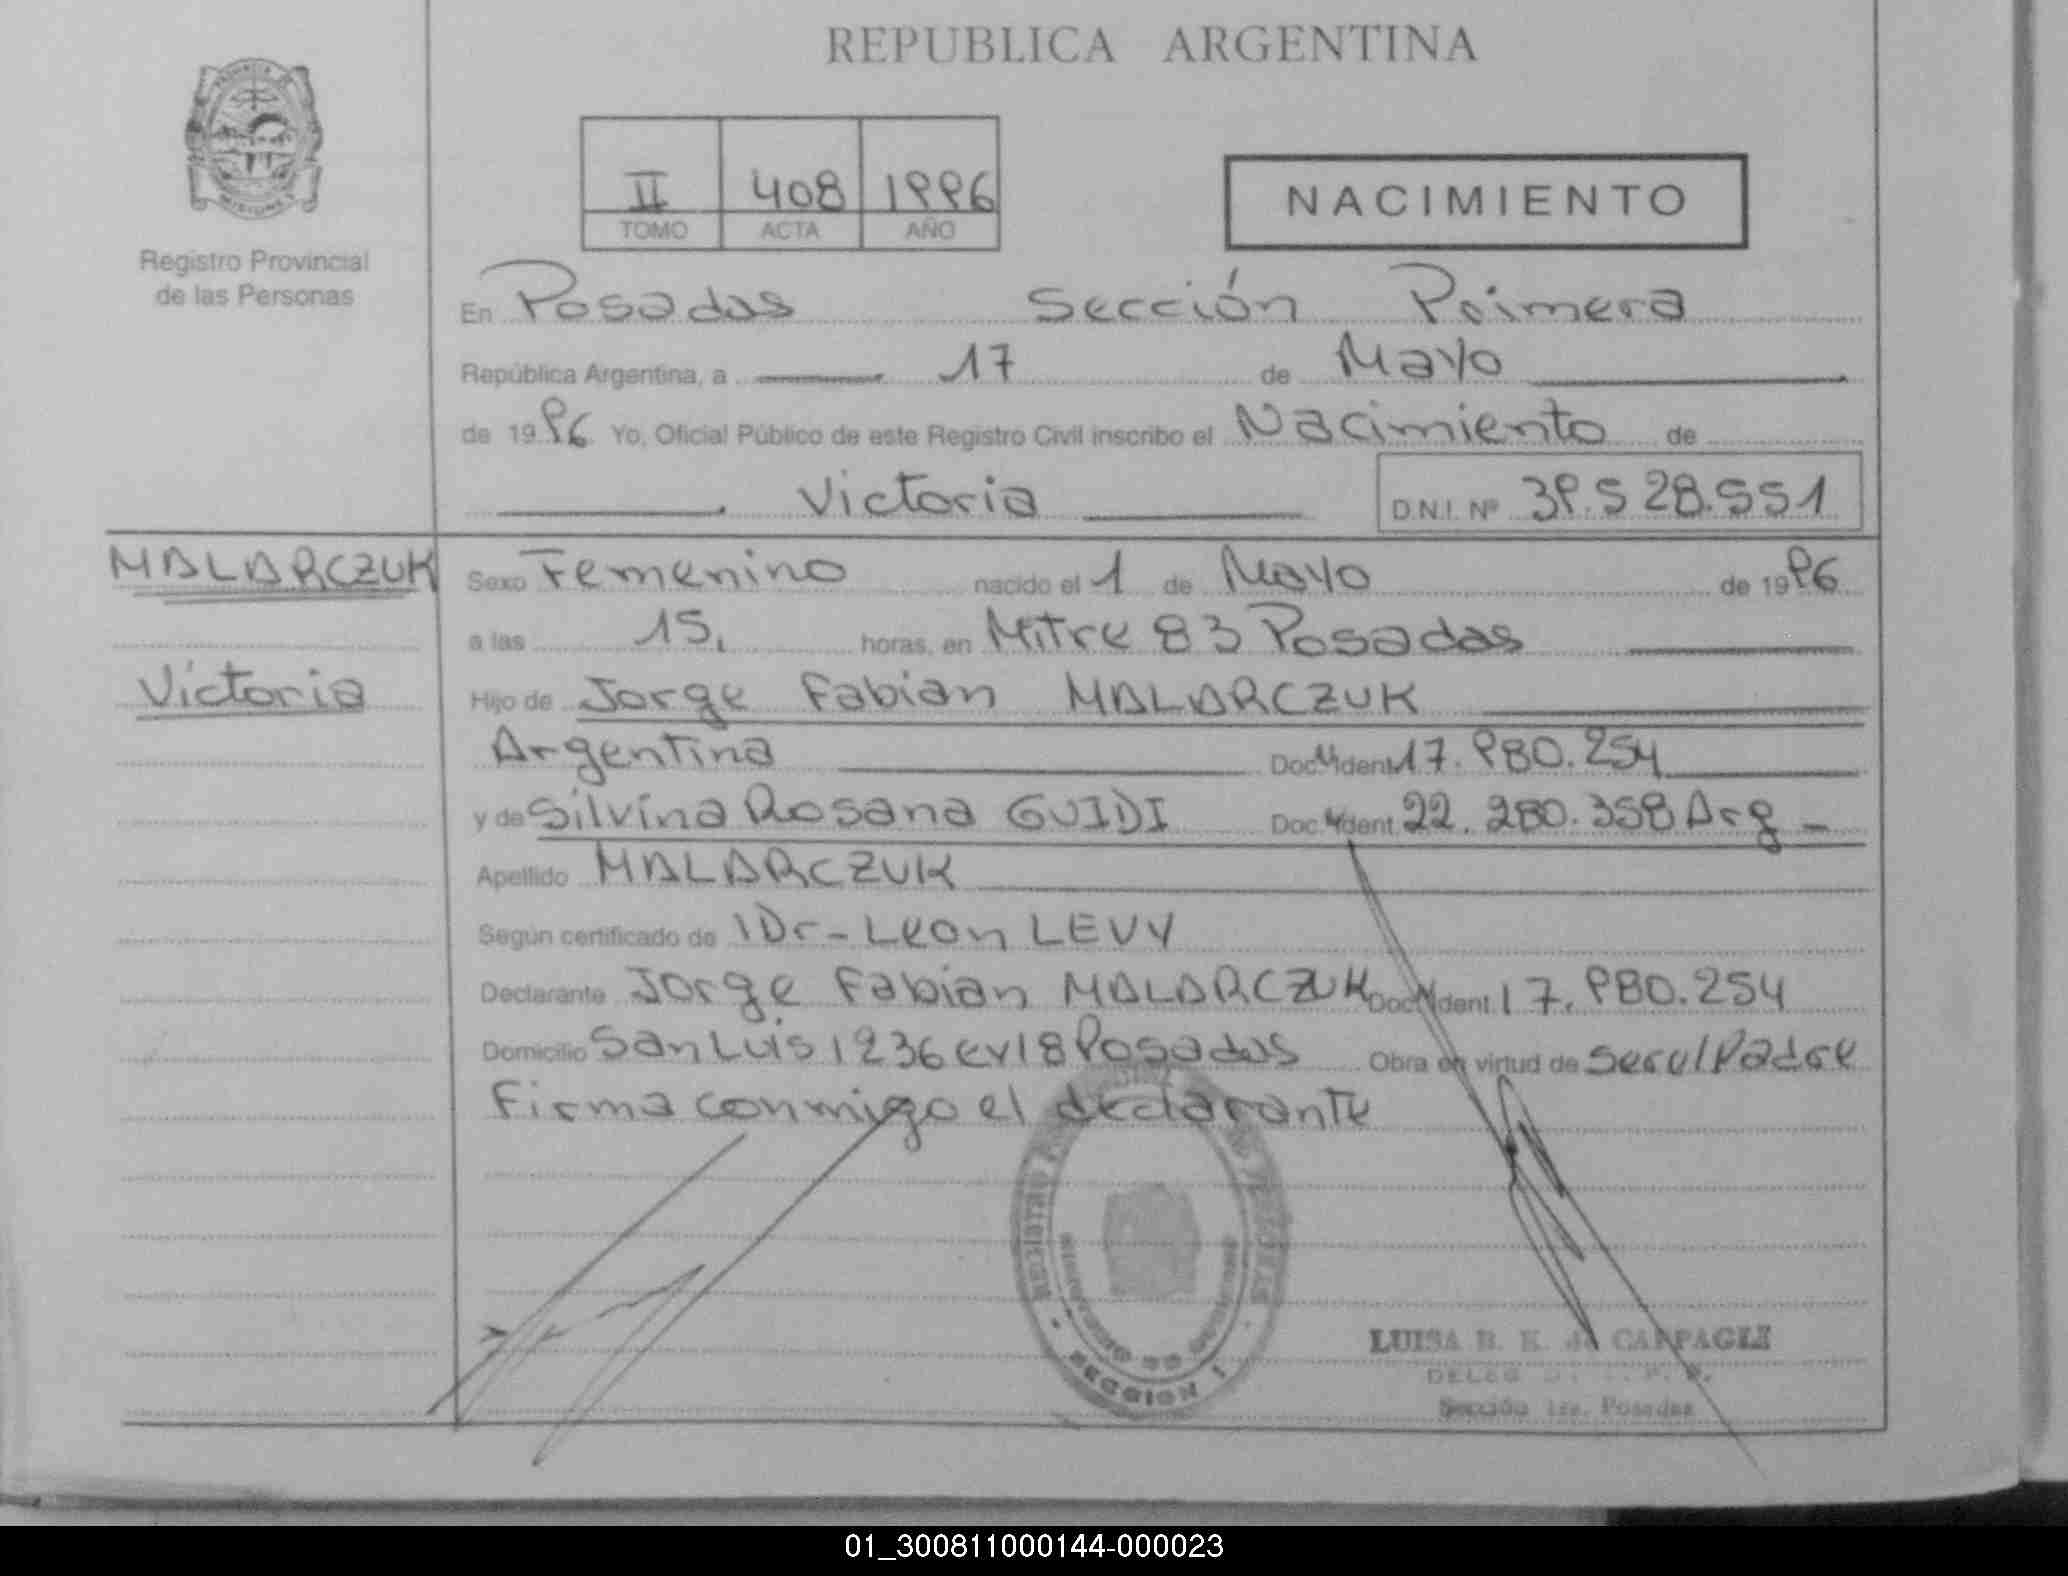 REPUBLICA ARGENTINA
PROVINCIA DE
MISIONES
Registro Provincial
de las Personas
II 408 1996
TOMO ACTA AÑO
NACIMIENTO
En Posadas Sección Primera
República Argentina, a 17 de Mayo
de 1996 Yo, Oficial Público de este Registro Civil inscribo el Nacimiento de
Victoria D.N.I. Nº 39.528.551
MALARCZUK
Victoria
Sexo Femenino nacido el 1 de Mayo de 1996
a las 15, horas, en Mitre 83 Posadas
Hijo de Jorge Fabian MALARCZUK
Argentina Doc. Ident. 17.980.254
y de Silvina Rosana GUIDI Doc. Ident. 22.280.358 Arg
Apellido MALARCZUK
Según certificado de Dr- Leon LEVY
Declarante Jorge Fabian MALARCZUK Doc. Ident. 17.980.254
Domicilio San Luis 1236 Posadas Obra en virtud de ser el Padre
Firma conmigo el declarante
REGISTRO
SECCION 1
LUISA B. K. de
Sección 1ra. Posadas
01_300811000144-000023